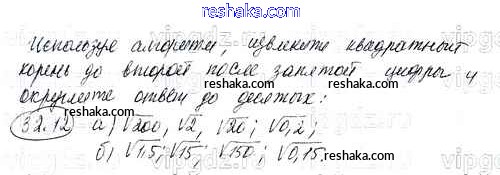 reshaka.ru
Используя алгоритм, извлеките квадратный
корень до второй после запятой цифры и
округлите ответ до десятых:
32.12 а) √200, √2, √20; √0,2;
б) √1,5; √15; √150; √0,15.
reshaka.ru